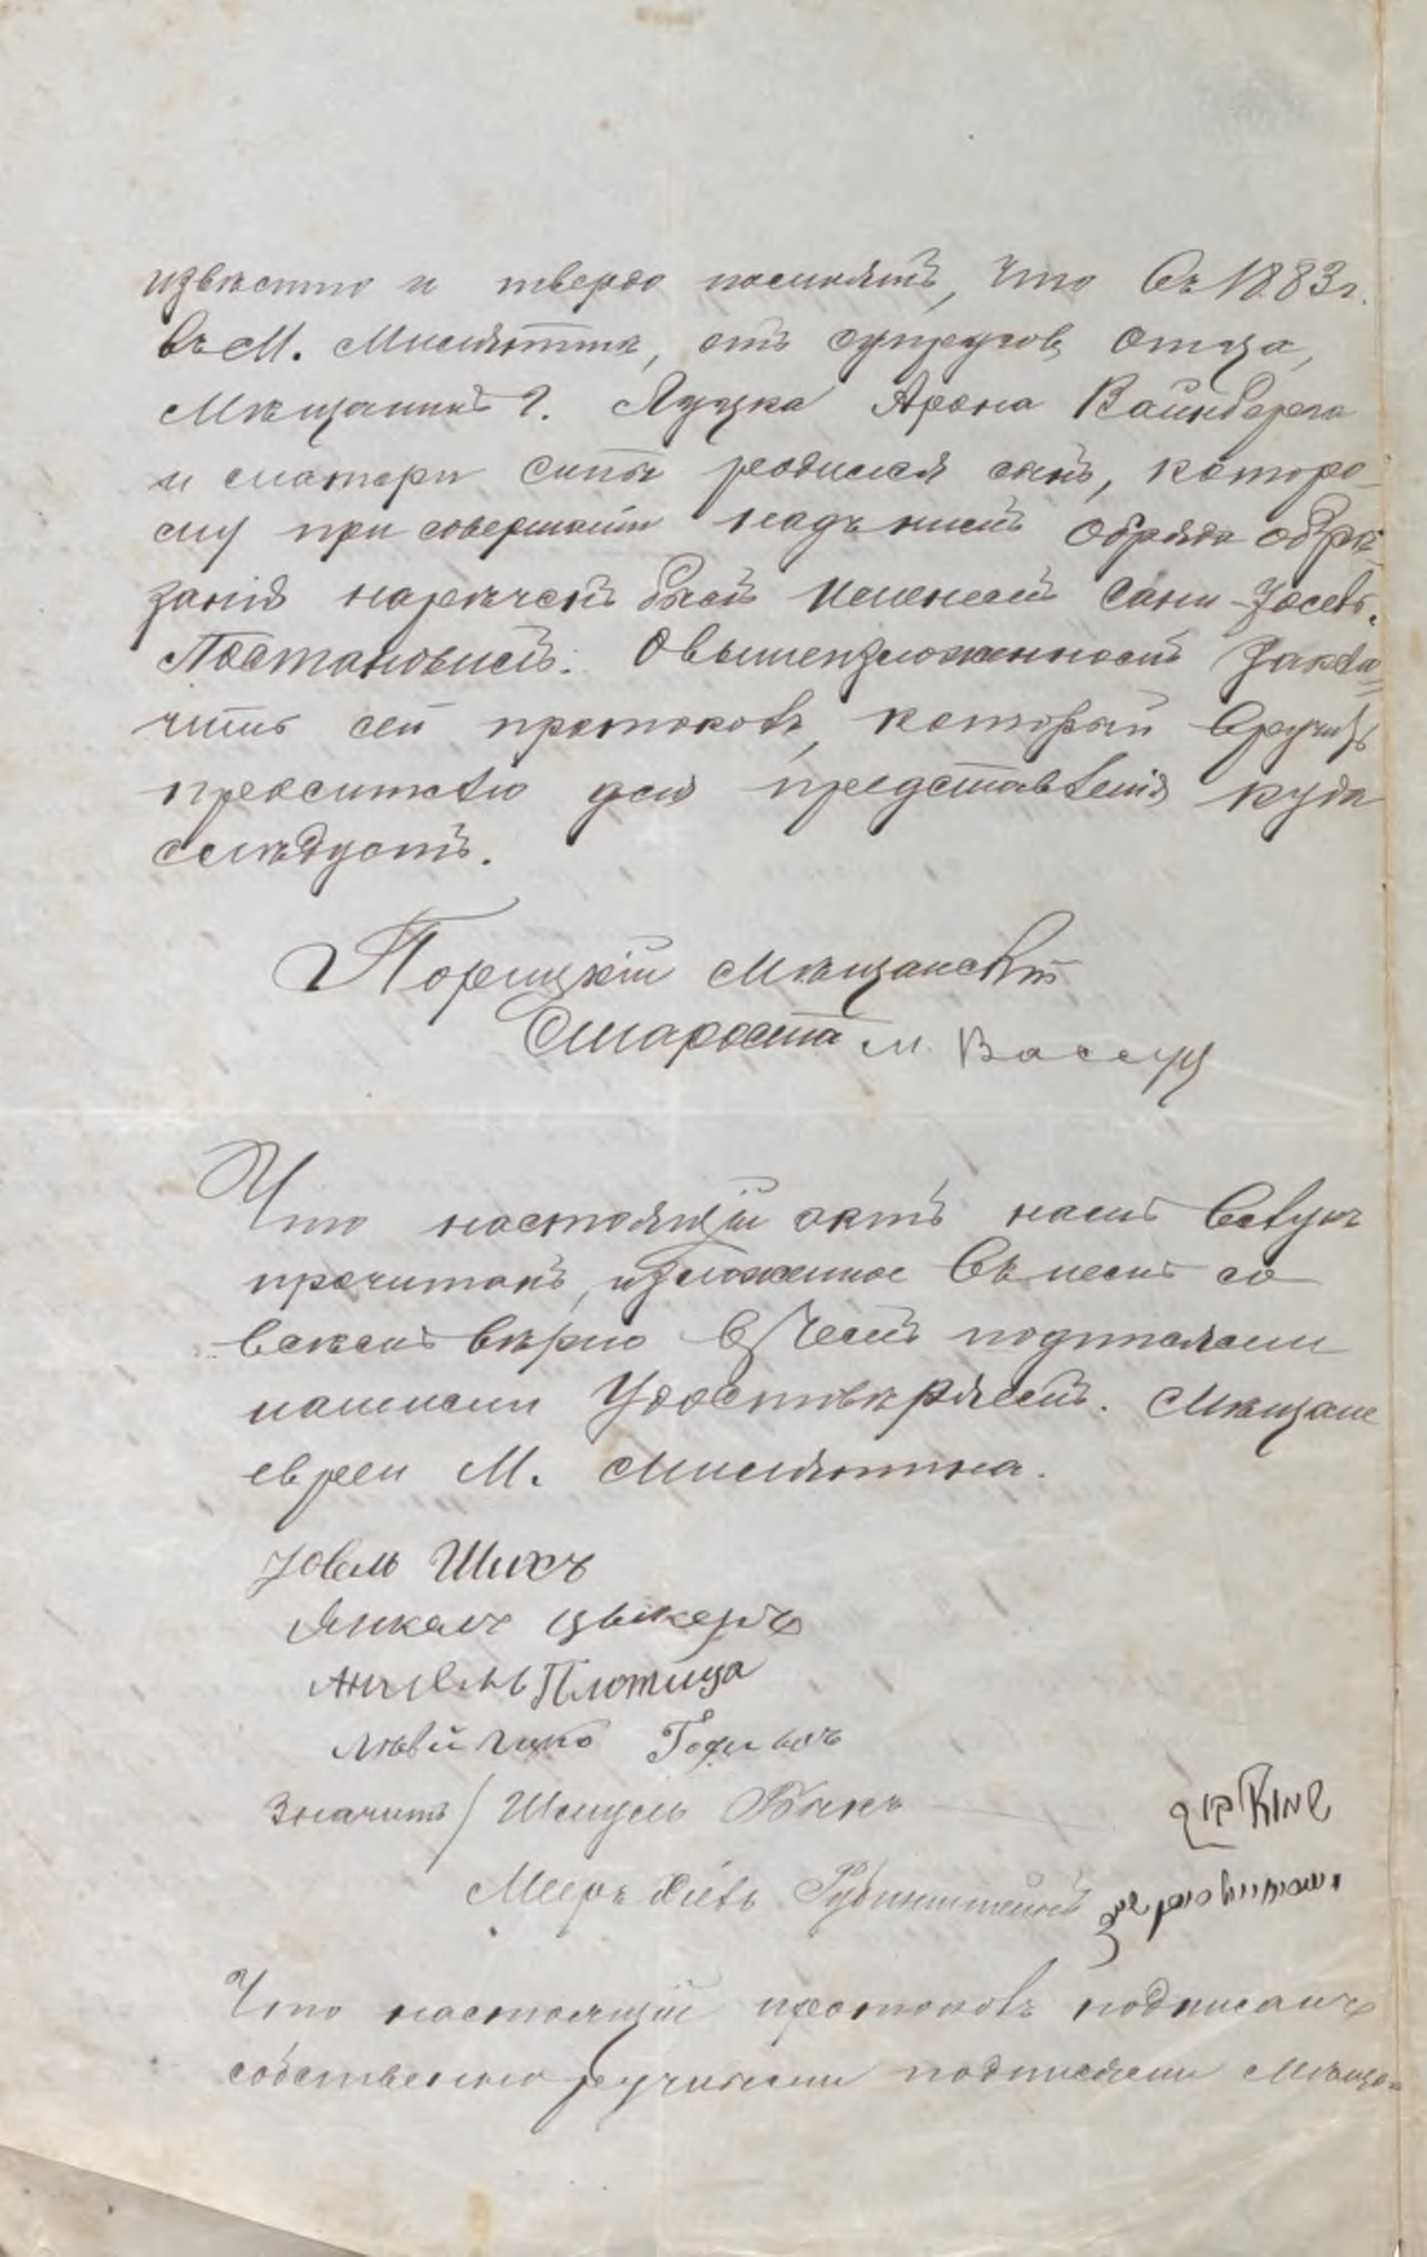 извѣстно и твердо помнятъ, что въ 1883 г.
въ М. Милятинѣ, отъ супруговъ отца,
Мѣщанина г. Луцка Арона Вайнберга
и матери Сипы родился сынъ, которо-
му при совершеніи надъ нимъ обряда обрѣ-
занія нареченъ былъ именемъ Сани-Іосевъ.
Постановилъ: О вышеизложенномъ заклю-
чить сей протоколъ, который вручить
просителю для представленія куда
слѣдуетъ.
Порицкій Мѣщанскій
Староста М.
Что настоящій актъ намъ вслухъ
прочитанъ, изложенное въ немъ со
всѣмъ вѣрно въ чемъ подписями
нашими удостовѣряемъ. Мѣщане
евреи М. Милятина.
Іовель Шихъ
Янкель Цыкеръ
Плотица
Значитъ / Шмуель Быкъ
שמואל ביק
Мееръ Лейбъ Рубинштейнъ
Что настоящій протоколъ подписанъ
собственноручными подписями Мѣща-